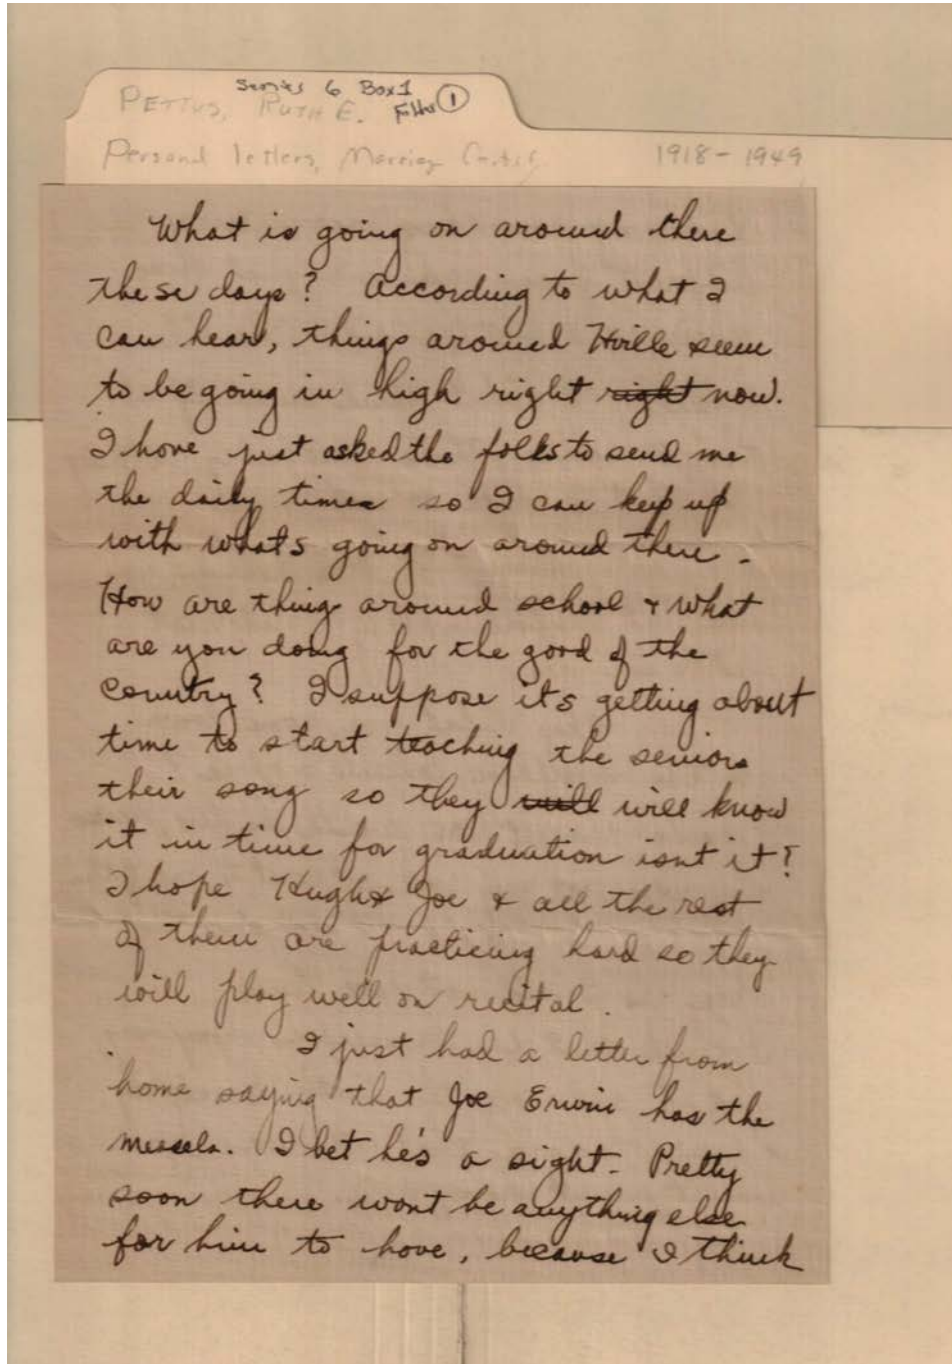 Series 6 Box 1
PETTUS, RUTH E. Folder 1
Personal letters, Marriage Certif. 1918-1949
What is going on around there
these days? According to what I
can hear, things around Hville seem
to be going in high right right now.
I have just asked the folks to send me
the daily times so I can keep up
with what's going on around there.
How are thing around school & what
are you doing for the good of the
country? I suppose it's getting about
time to start teaching the seniors
their song so they will will know
it in time for graduation isnt it?
I hope Hugh & Joe & all the rest
of them are practicing hard so they
will play well on recital.
I just had a letter from
home saying that Joe Erwin has the
measels. I bet he's a sight. Pretty
soon there wont be anything else
for him to have, because I think